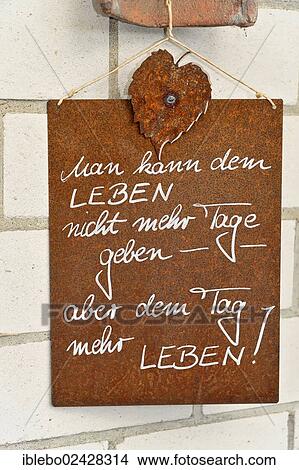 Man kann dem
LEBEN
nicht mehr Tage
geben — —
aber dem Tag
mehr LEBEN!
FOTOSEARCH
iblebo02428314 www.fotosearch.com